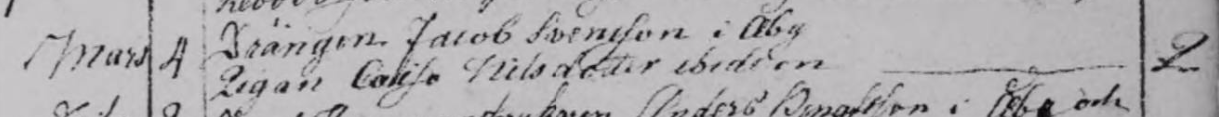 Mars 4 Drängen Jacob Svenson i Åby
Pigan Cajsa Nils dotter ibidem 2
Anders Bengtsson i Åby och